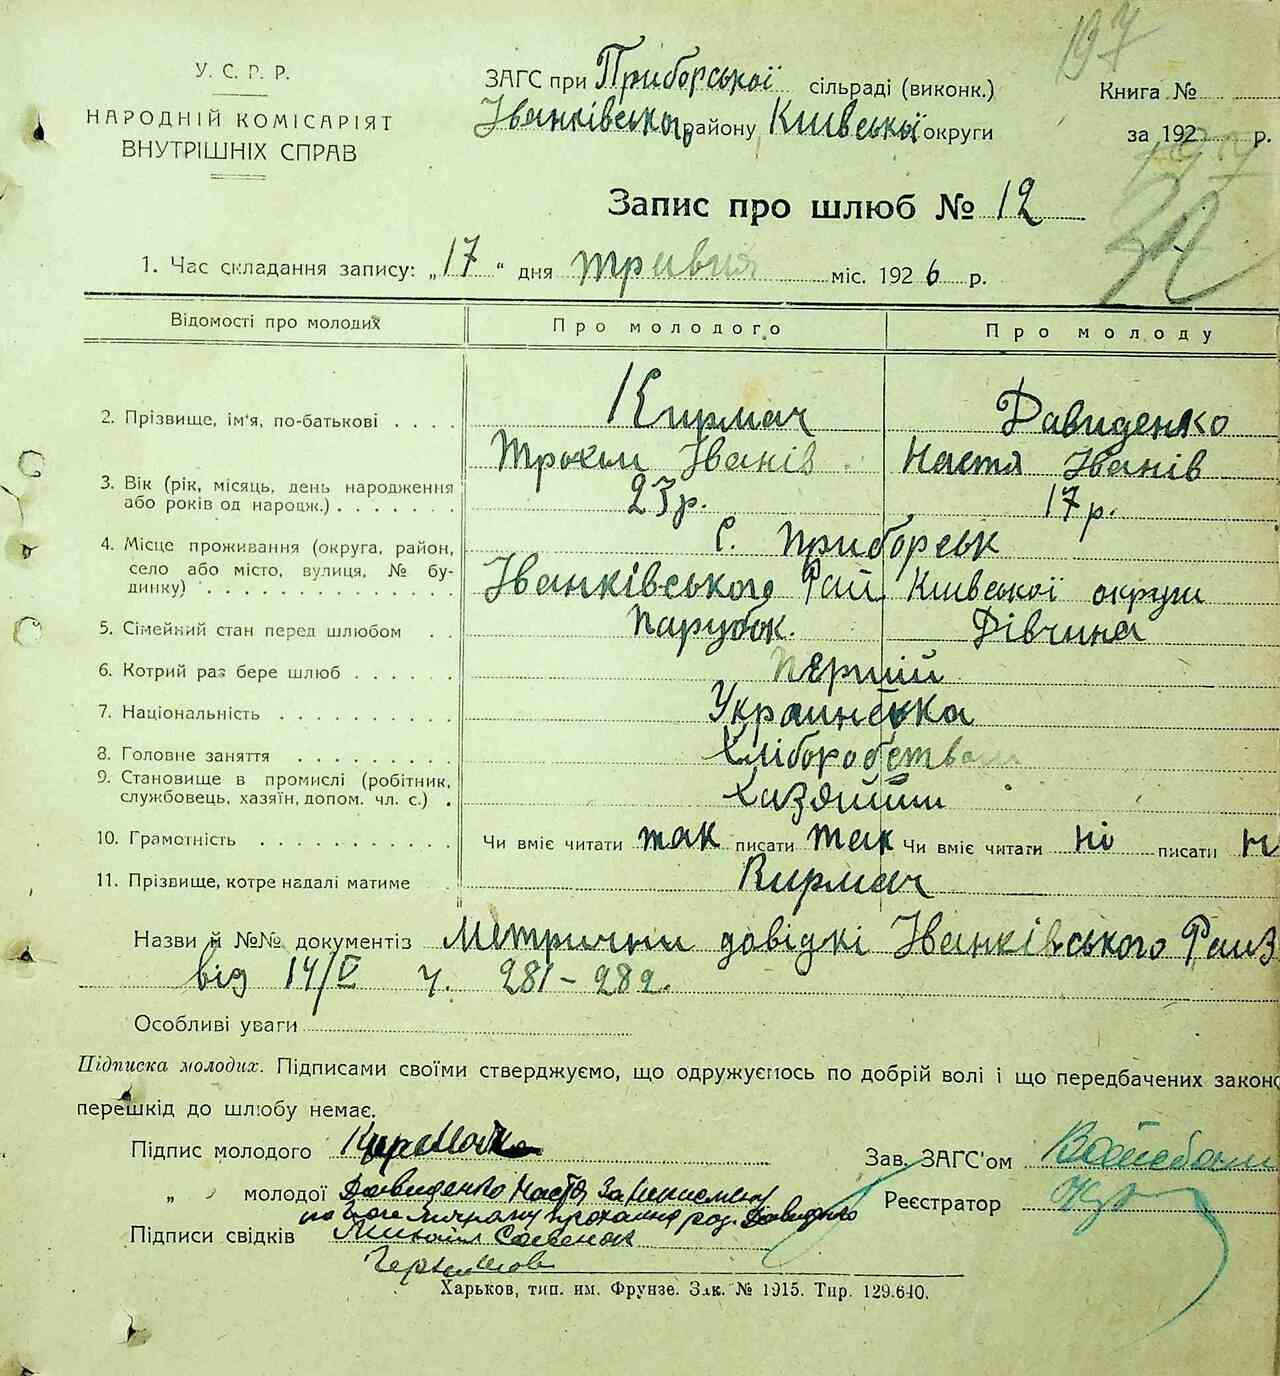 197
У. С. Р. Р.
НАРОДНІЙ КОМІСАРІЯТ
ВНУТРІШНІХ СПРАВ
ЗАГС при Приборської сільраді (виконк.)
Іванківського району Київської округи
Книга №
за 192 р.
Запис про шлюб № 12
1. Час складання запису: „17“ дня травня міс. 1926 р.
Відомості про молодих Про молодого Про молоду
2. Прізвище, ім'я, по-батькові . . . . Кирмач Давиденко
Трохим Іванів Настя Іванів
3. Вік (рік, місяць, день народження або років од народж.) . . . . . . . 23р. 17р.
4. Місце проживання (округа, район, село або місто, вулиця, № будинку) . . . . . . . . . . . . . . С. Приборськ
Іванківського Рай Київської округи
5. Сімейний стан перед шлюбом . . Парубок. Дівчина
6. Котрий раз бере шлюб . . . . . . Перший
7. Національність . . . . . . . . . .
8. Головне заняття . . . . . . . . . Хліборобством
9. Становище в промислі (робітник, службовець, хазяїн, допом. чл. с.) .
10. Грамотність . . . . . . . . . . . Чи вміє читати так писати так Чи вміє читати ні писати н
11. Прізвище, котре надалі матиме . Кирмач
Назви й №№ документів Метрични довідкі Іванківського
від 14/V ч. 281-282.
Особливі уваги
Підписка молодих. Підписами своїми стверджуємо, що одружуємось по добрій волі і що передбачених закон
перешкід до шлюбу немає.
Підпис молодого
Зав. ЗАГС'ом
„ „ молодої Давиденко Настя
Реєстратор
Давиденко
Підписи свідків Михайл
Харьков, тип. им. Фрунзе. Зак. № 1915. Тир. 129.640.